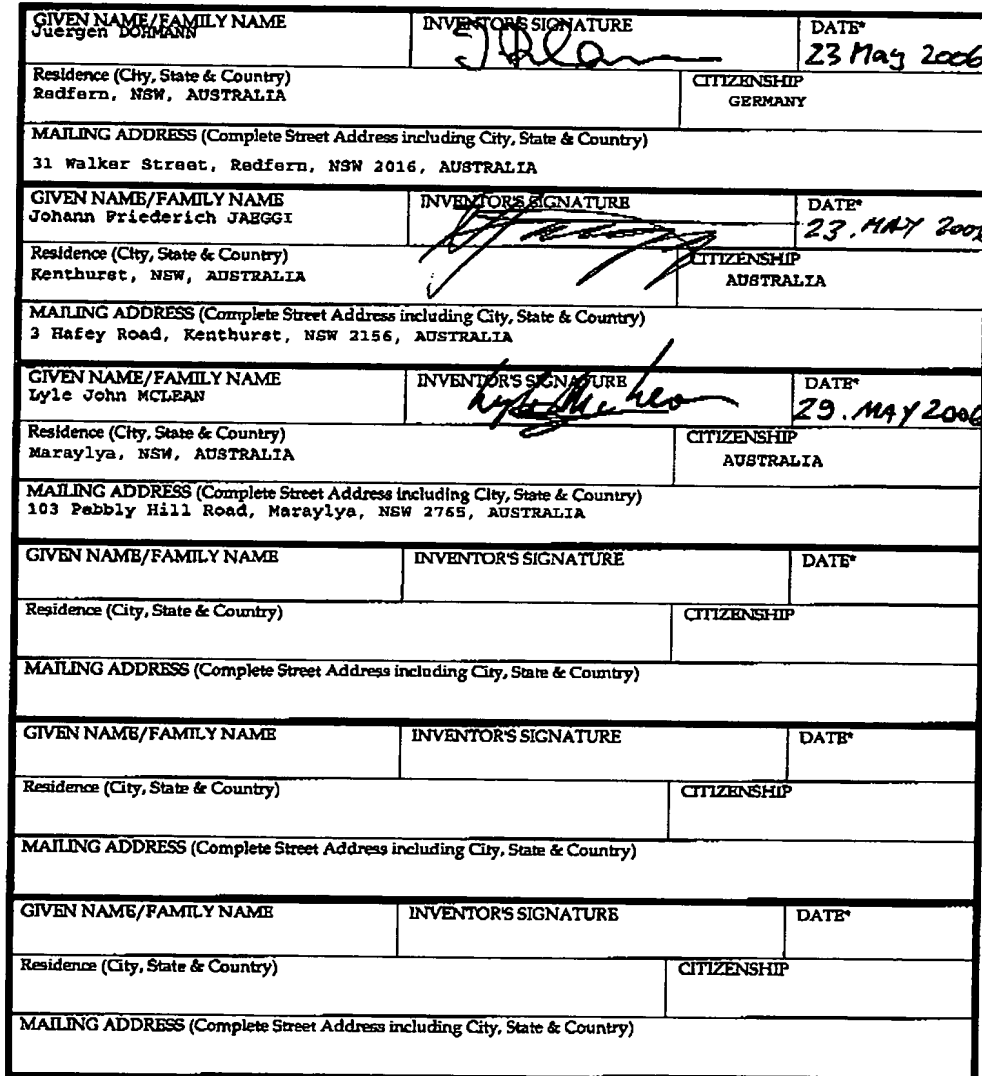 GIVEN NAME/FAMILY NAME INVENTOR'S SIGNATURE DATE*
Juergen DOHMANN 23 May 2006
Residence (City, State & Country) CITIZENSHIP
Redfern, NSW, AUSTRALIA GERMANY
MAILING ADDRESS (Complete Street Address including City, State & Country)
31 Walker Street, Redfern, NSW 2016, AUSTRALIA
GIVEN NAME/FAMILY NAME INVENTOR'S SIGNATURE DATE*
Johann Friederich JAEGGI 23. MAY 2006
Residence (City, State & Country) CITIZENSHIP
Kenthurst, NSW, AUSTRALIA AUSTRALIA
MAILING ADDRESS (Complete Street Address including City, State & Country)
3 Hafey Road, Kenthurst, NSW 2156, AUSTRALIA
GIVEN NAME/FAMILY NAME INVENTOR'S SIGNATURE DATE*
Lyle John MCLEAN 29. MAY 2006
Residence (City, State & Country) CITIZENSHIP
Maraylya, NSW, AUSTRALIA AUSTRALIA
MAILING ADDRESS (Complete Street Address including City, State & Country)
103 Pebbly Hill Road, Maraylya, NSW 2765, AUSTRALIA
GIVEN NAME/FAMILY NAME INVENTOR'S SIGNATURE DATE*
Residence (City, State & Country) CITIZENSHIP
MAILING ADDRESS (Complete Street Address including City, State & Country)
GIVEN NAME/FAMILY NAME INVENTOR'S SIGNATURE DATE*
Residence (City, State & Country) CITIZENSHIP
MAILING ADDRESS (Complete Street Address including City, State & Country)
GIVEN NAME/FAMILY NAME INVENTOR'S SIGNATURE DATE*
Residence (City, State & Country) CITIZENSHIP
MAILING ADDRESS (Complete Street Address including City, State & Country)